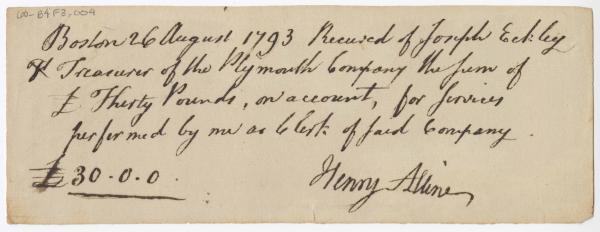 60-B4F3,004
Boston 26 August 1793 Received of Joseph Eckley
Treasurer of the Plymouth Company the Sum of
£ Thirty Pounds, on account, for Services
performed by me as Clerk of said Company.
£ 30-0.0.
Henry Alline